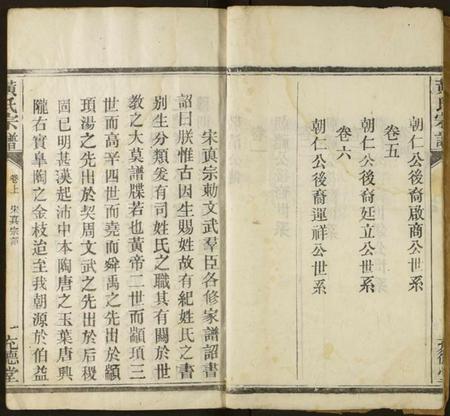 黃氏宗譜
朝仁公後裔啟商公世系
卷五
朝仁公後裔廷立公世系
卷六
朝仁公後裔運祥公世系
宋真宗勅文武羣臣各修家譜詔書
詔曰朕惟古因生賜姓故有紀姓氏之書
別生分類爰有司姓氏之職其有關於世
教之大莫譜牒若也黃帝二世而顓頊三
世而高辛四世而堯而舜禹之先出於顓
頊湯之先出於契周文武之先出於后稷
固已明甚漢起沛中本陶唐之玉葉唐興
隴右實臯陶之金枝迨至我朝源於伯益
黃氏宗譜
卷上
宋真宗詔
一
充德堂